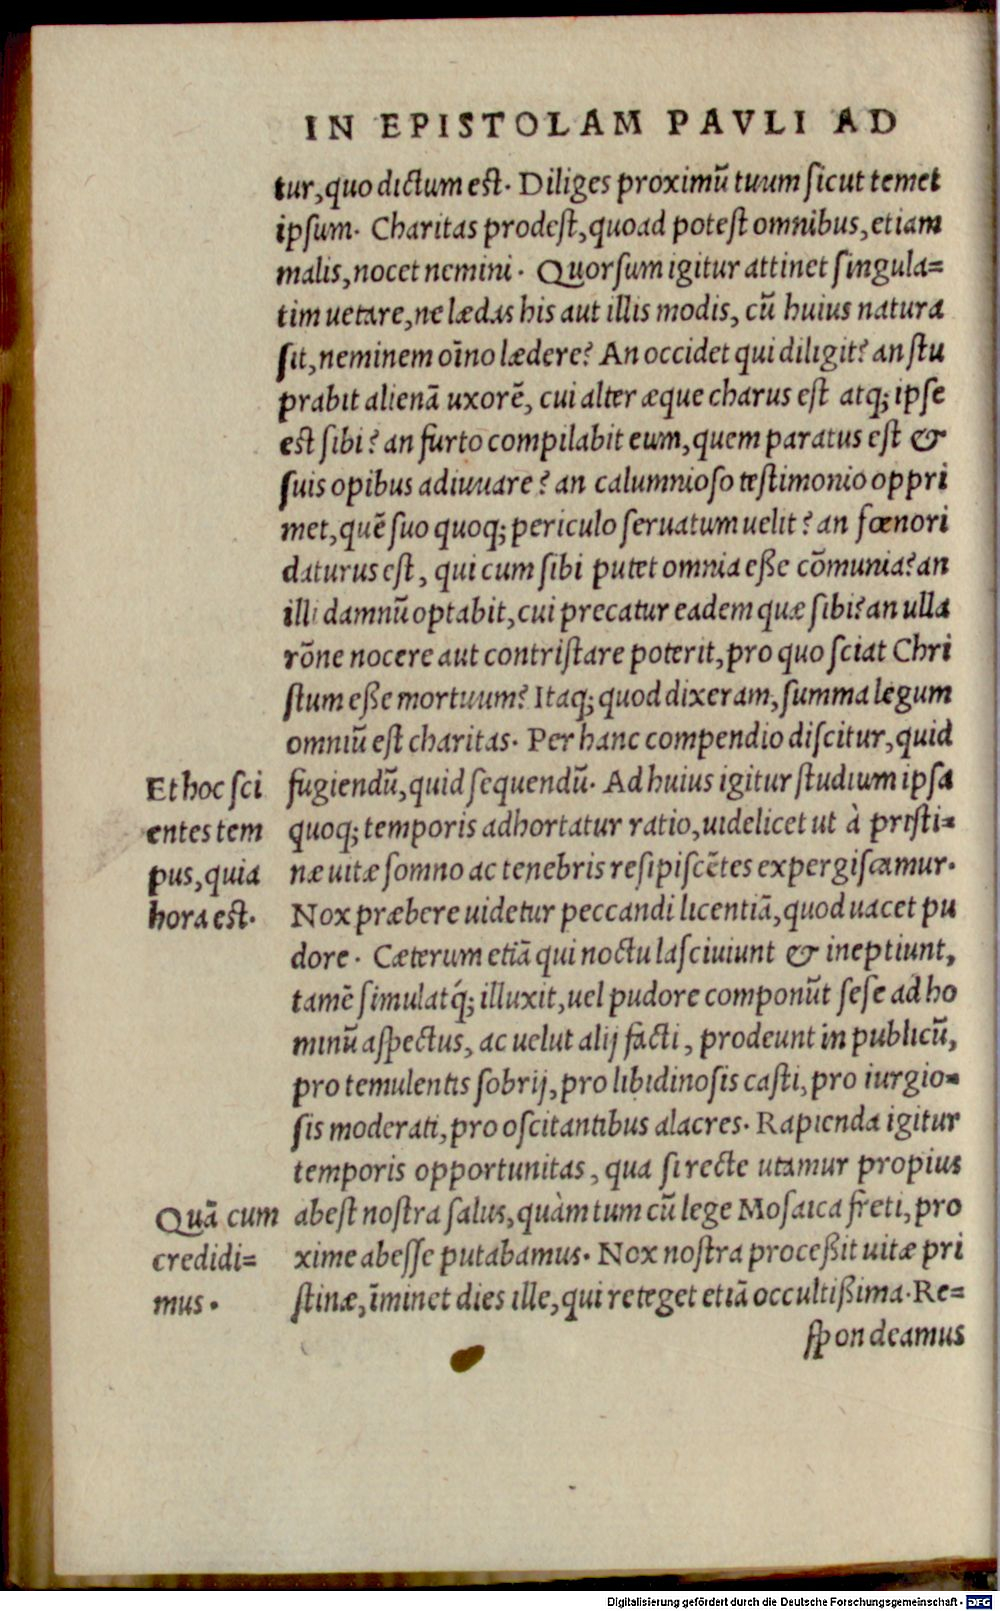 IN EPISTOLAM PAVLI AD
tur, quo dictum est. Diliges proximū tuum sicut temet
ipsum. Charitas prodest, quoad potest omnibus, etiam
malis, nocet nemini. Quorsum igitur attinet singula=
tim uetare, ne lædas his aut illis modis, cū huius natura
sit, neminem oīno lædere? An occidet qui diligit? an stu
prabit alienā uxorē, cui alter æque charus est atq; ipse
est sibi? an furto compilabit eum, quem paratus est &
suis opibus adiuuare? an calumnioso testimonio oppri
met, quē suo quoq; periculo seruatum uelit? an fœnori
daturus est, qui cum sibi putet omnia eße cōmunia? an
illi damnū optabit, cui precatur eadem quæ sibi? an ulla
rōne nocere aut contristare poterit, pro quo sciat Chri
stum eße mortuum? Itaq; quod dixeram, summa legum
omniū est charitas. Per hanc compendio discitur, quid
Et hoc sci
entes tem
pus, quia
hora est.
fugiendū, quid sequendū. Ad huius igitur studium ipsa
quoq; temporis adhortatur ratio, uidelicet ut à pristi=
næ uitæ somno ac tenebris resipiscētes expergiscamur.
Nox præbere uidetur peccandi licentiā, quod uacet pu
dore. Cæterum etiā qui noctu lasciuiunt & ineptiunt,
tamē simulatq́; illuxit, uel pudore componūt sese ad ho
minū aspectus, ac uelut alij facti, prodeunt in publicū,
pro temulentis sobrij, pro libidinosis casti, pro iurgio=
sis moderati, pro oscitantibus alacres. Rapienda igitur
temporis opportunitas, qua si recte utamur propius
Quā cum
credidi=
mus.
abest nostra salus, quàm tum cū lege Mosaica freti, pro
xime abesse putabamus. Nox nostra proceßit uitæ pri
stinæ, īminet dies ille, qui reteget etiā occultißima. Re=
spondeamus
Digitalisierung gefördert durch die Deutsche Forschungsgemeinschaft - DFG